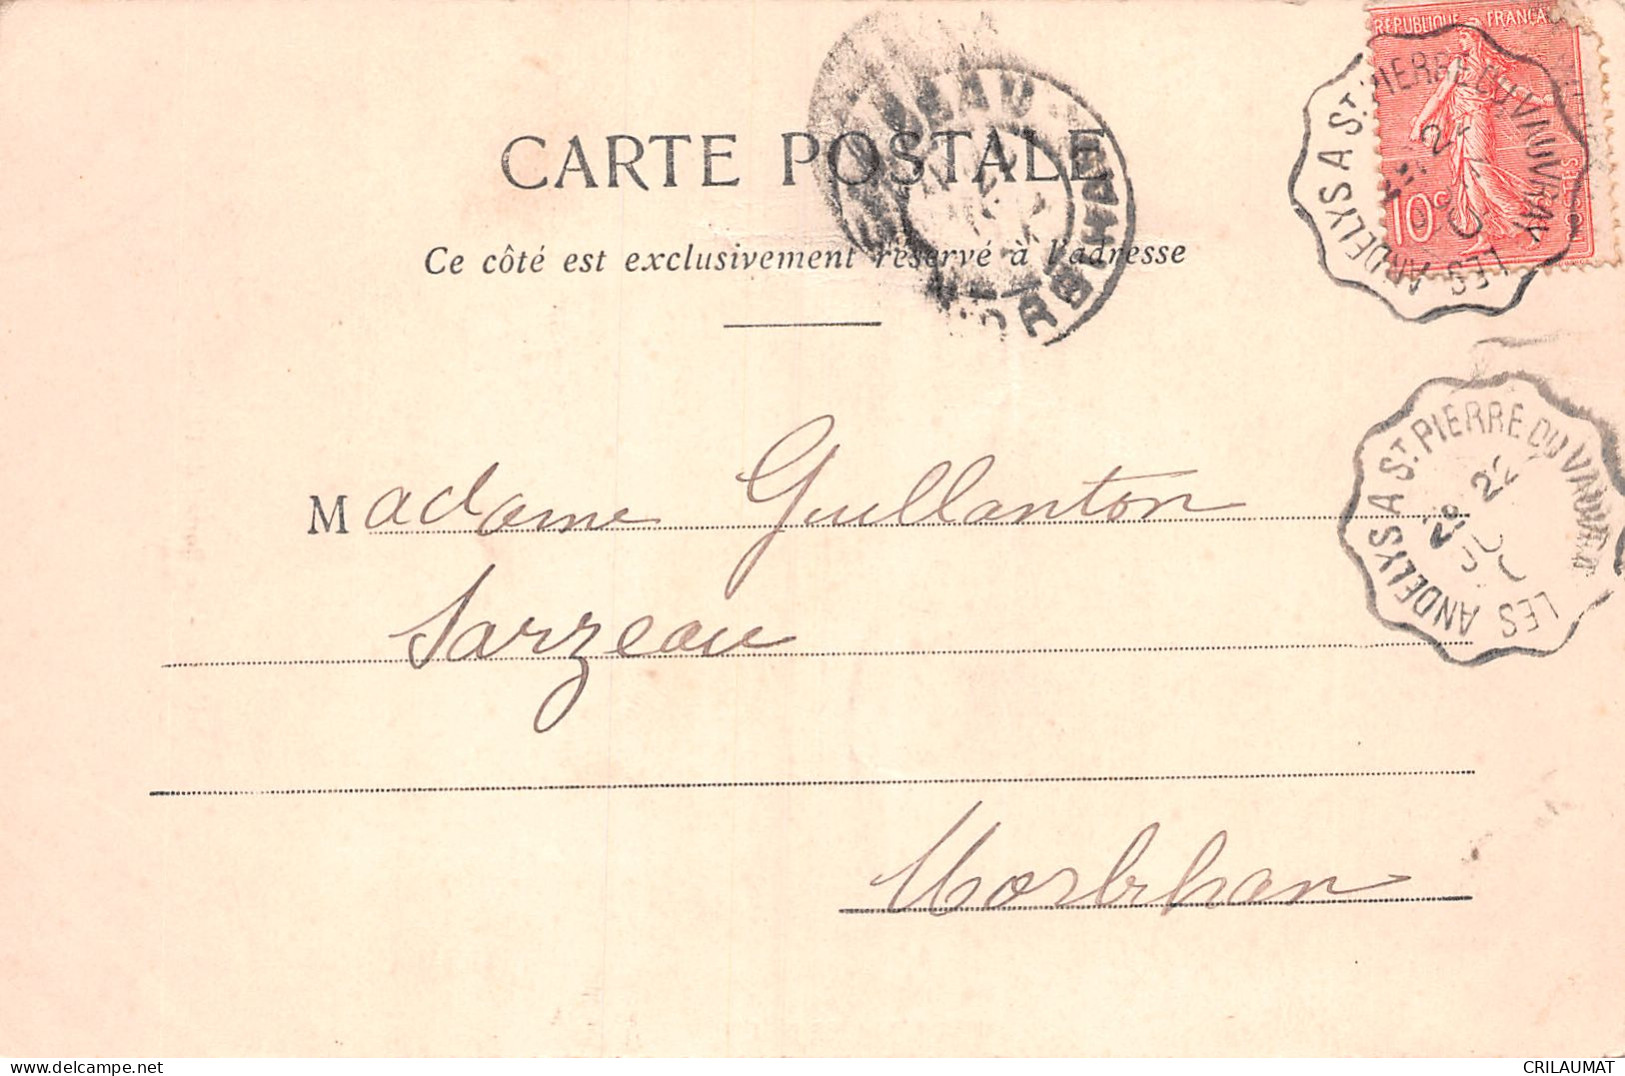 REPUBLIQUE FRANÇAISE
POSTES
10c
LES ANDELYS A ST. PIERRE DU VAUVRAY
CARTE POSTALE
Ce côté est exclusivement réservé à l'adresse
SARZEAU
MORBIHAN
LES ANDELYS A ST. PIERRE DU VAUVRAY
22
Madame Guillanton
Sarzeau
Morbihan
CRILAUMAT